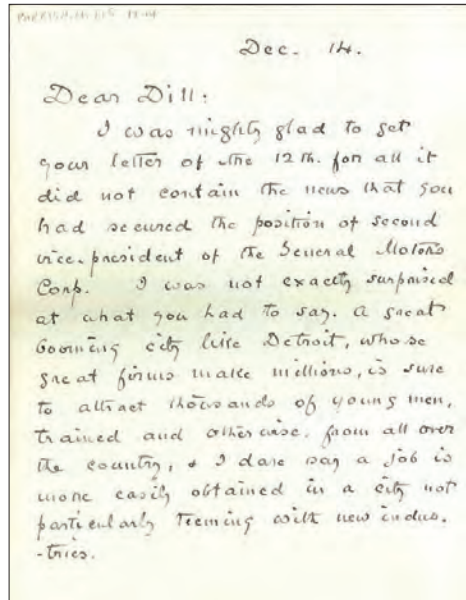 Dec. 14.
Dear Dill:
I was mighty glad to get
your letter of the 12th. for all it
did not contain the news that you
had secured the position of second
vice-president of the General Motors
Corp. I was not exactly surprised
at what you had to say. A great
booming city like Detroit, whose
great firms make millions, is sure
to attract thousands of young men,
trained and otherwise, from all over
the country, & I dare say a job is
more easily obtained in a city not
particularly teeming with new indus-
-tries.